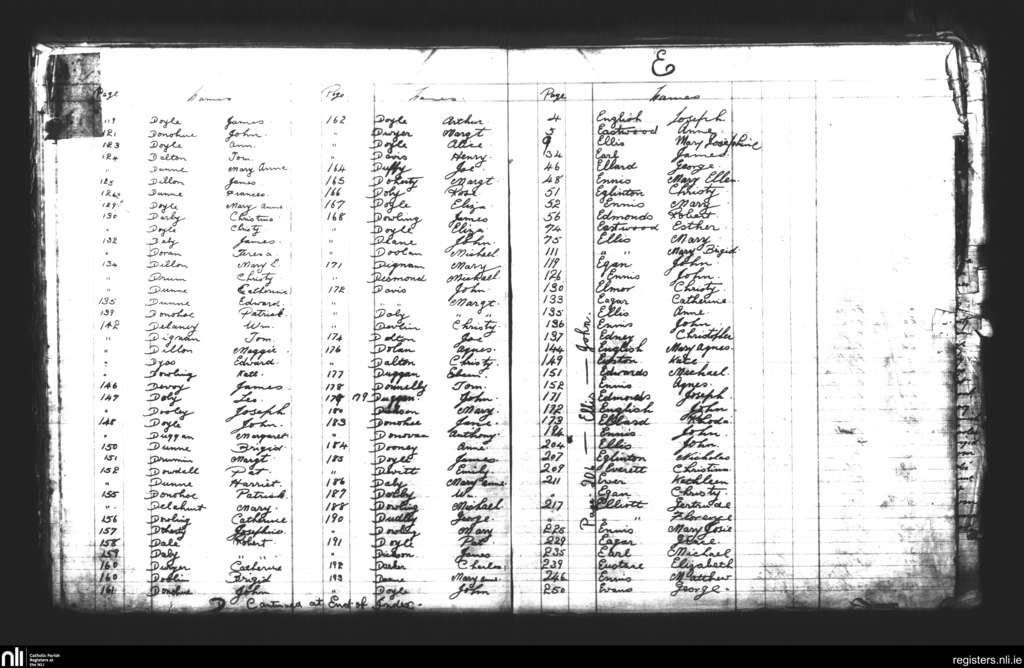 E
Page Names Page Names
119 Doyle James
121 Donohue John
123 Doyle Ann
124 Dalton Tom
" Dunne Mary Anne
125 Dillon James
126 Dunne Frances
129 Doyle Mary Anne
130 Darby Christina
" Doyle Christy
132 Daly James
" Doran Teresa
134 Dillon Mary
" Drum Christy
" Dunne Catherine
135 Dunne Edward
139 Donohoe Patrick
142 Delaney Wm.
" Dignan Tom
" Dillon Maggie
" Edward
" Dowling Kate
146 Devoy James
147 Doly
" Dooley Joseph
148 Doyle John
" Duggan Margaret
150 Dunne Brigid
151 Margt
152 Dowdell Pat
" Dunne Harriet
155 Donohoe Patrick
" Delahunt Mary
156 Dowling Catherine
157 Doherty Josephine
158 Dale Robert
159 Daly " "
160 Dwyer Catherine
160 Doblin Brigid
161 Donohue John
D Continued at End of Index.
162 Doyle Arthur
" Dwyer Margt
" Doyle Alice
" Davis Henry
164 Duffy Joe
165 Doherty Margt
166 Doly Rose
167 Doyle Eliza
168 Dowling James
" Doyle Eliza
" John
" Doolan Michael
171 Dignam Mary
" Desmond Michael
172 Davis John
" " " Margt
" Daly " "
" Devlin Christy
174 Dalton Joe
176 Dolan Agnes
" Dalton Christy
177 Duggan
178 Donnelly Tom
179 Duggan John
180 Mary
183 Donohoe Jane
" Donovan Anthony
184 Dooney Anne
185 Doyle James
" Devitt Emily
186 Daly Mary Anne
187 Dobby Wm.
188 Dowling Michael
190 Dudley George
" Dowling Mary
191 Doyle Pat
" James
192 Charles
193 Mary Anne
" Doyle John
Page Names
4 English Joseph
5 Eastwood Anne
9 Ellis Mary Josephine
34 Earl James
46 Ellard George
48 Ennis Mary Ellen
51 Eglinton Christy
52 Ennis Mary
56 Edmonds Robert
74 Eastwood Esther
75 Ellis Mary
111 " " Mary Brigid
119 Egan John
126 Ennis John
130 Elmor Christy
133 Eagar Catherine
135 Ellis Anne
136 Ennis John
137 Edney Christopher
144 English Mary Agnes
149 Kate
151 Edwards Michael
152 Ennis Agnes
171 Edmonds Joseph
172 English John
173 Ellard Rhoda
196 Ennis John
204 Ellis John
207 Eglinton Nicholas
209 Everett Christina
211 Ever Kathleen
" Egan Christy
217 Elliott Gertrude
" " Florence
225 Ennis Mary Josie
229 Eagar
235 Earl Michael
239 Eustace Elizabeth
246 Ennis Matthew
250 Evans George
Page 216 — Ellis — John.
nli Catholic Parish
Registers at
the NLI
registers.nli.ie